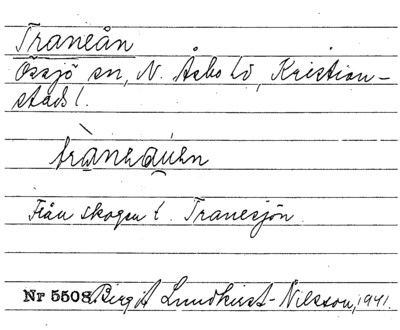 Traneån
Össjö sn, N. Åsbo hd, Kristian-
stads l.
tràneaúen
Från skogen t. Tranesjön.
Nr 5508 Birgit Lundkvist-Nilsson, 1941.